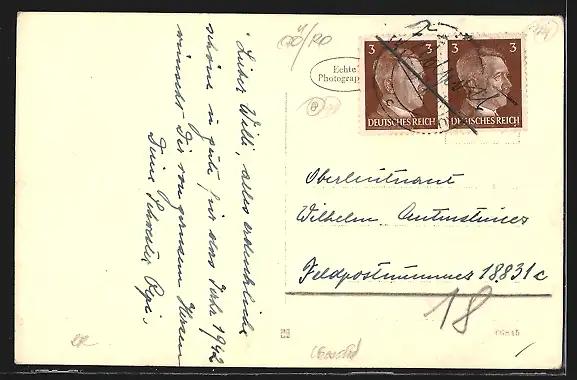 Lieber Willi, alles erdenkliche
schöne u. gute für das Jahr 1942
wünscht Dir von ganzem Herzen
Deine Schwester
Echte
Photograp
3
3
DEUTSCHES REICH
DEUTSCHES REICH
Oberleutnant
Wilhelm
Feldpostnummer 18831c
18